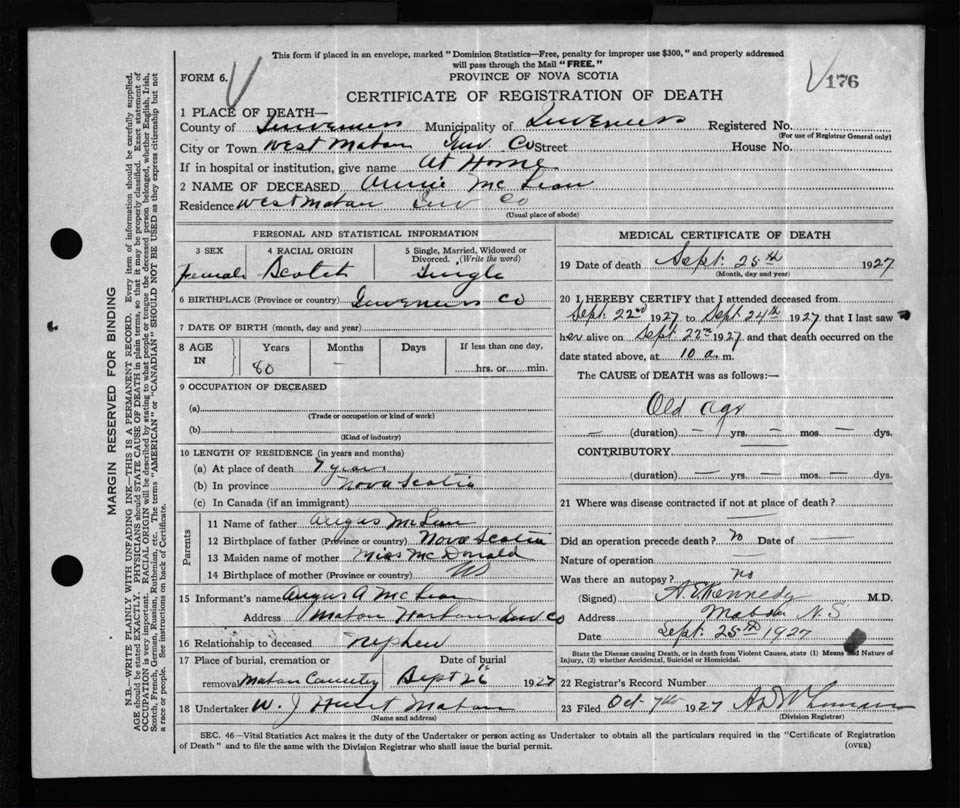 This form if placed in an envelope, marked "Dominion Statistics—Free, penalty for improper use $300," and properly addressed
will pass through the Mail "FREE."
FORM 6.
PROVINCE OF NOVA SCOTIA
176
CERTIFICATE OF REGISTRATION OF DEATH
1 PLACE OF DEATH—
County of Inverness Municipality of Inverness Registered No.
(For use of Registrar General only)
City or Town West Mabou Inv Co Street House No.
If in hospital or institution, give name At Home
2 NAME OF DECEASED Annie Mc Lean
Residence West Mabou Inv Co
(Usual place of abode)
PERSONAL AND STATISTICAL INFORMATION
3 SEX 4 RACIAL ORIGIN 5 Single, Married, Widowed or
Divorced. (Write the word)
Female Scotch Single
6 BIRTHPLACE (Province or country) Inverness Co
7 DATE OF BIRTH (month, day and year)
8 AGE IN Years Months Days If less than one day,
80 — hrs. or min.
9 OCCUPATION OF DECEASED
(a)
(Trade or occupation or kind of work)
(b)
(Kind of industry)
10 LENGTH OF RESIDENCE (in years and months)
(a) At place of death 7 years
(b) In province Nova Scotia
(c) In Canada (if an immigrant)
Parents
11 Name of father Angus McLean
12 Birthplace of father (Province or country) Nova Scotia
13 Maiden name of mother Miss McDonald
14 Birthplace of mother (Province or country) NS
15 Informant's name Angus A McLean
Address Mabou Harbour Inv Co
16 Relationship to deceased nephew
17 Place of burial, cremation or Date of burial
removal Mabou Sept 26 1927
18 Undertaker W. J Mabou
(Name and address)
MEDICAL CERTIFICATE OF DEATH
19 Date of death Sept. 25th 1927
(Month, day and year)
20 I HEREBY CERTIFY that I attended deceased from
Sept. 22nd 1927 to Sept. 24th 1927 that I last saw
her alive on Sept. 22nd 1927 and that death occurred on the
date stated above, at 10 a. m.
The CAUSE of DEATH was as follows:—
Old age
— (duration) — yrs. — mos. — dys.
CONTRIBUTORY
(duration) — yrs. — mos. — dys.
21 Where was disease contracted if not at place of death?
Did an operation precede death? no Date of —
Nature of operation —
Was there an autopsy? no
(Signed) Kennedy M.D.
Address Mabou N.S
Date Sept. 25th 1927
State the Disease causing Death, or in death from Violent Causes, state (1) Means and Nature of
Injury, (2) whether Accidental, Suicidal or Homicidal.
22 Registrar's Record Number
23 Filed Oct 7th 1927
(Division Registrar)
SEC. 46—Vital Statistics Act makes it the duty of the Undertaker or person acting as Undertaker to obtain all the particulars required in the "Certificate of Registration
of Death" and to file the same with the Division Registrar who shall issue the burial permit.
(OVER)
MARGIN RESERVED FOR BINDING
N.B.—WRITE PLAINLY WITH UNFADING INK—THIS IS A PERMANENT RECORD. Every item of information should be carefully supplied.
AGE should be stated EXACTLY. PHYSICIANS should STATE CAUSE OF DEATH in plain terms, so that it may be properly classified. Exact statement of
OCCUPATION is very important. RACIAL ORIGIN will be described by stating to what people or tongue the deceased person belonged, whether English, Irish,
Scotch, French, German, Russian, Ruthenian, etc. The terms "AMERICAN" or "CANADIAN" SHOULD NOT BE USED as they express citizenship but not
a race or people. See instructions on back of Certificate.